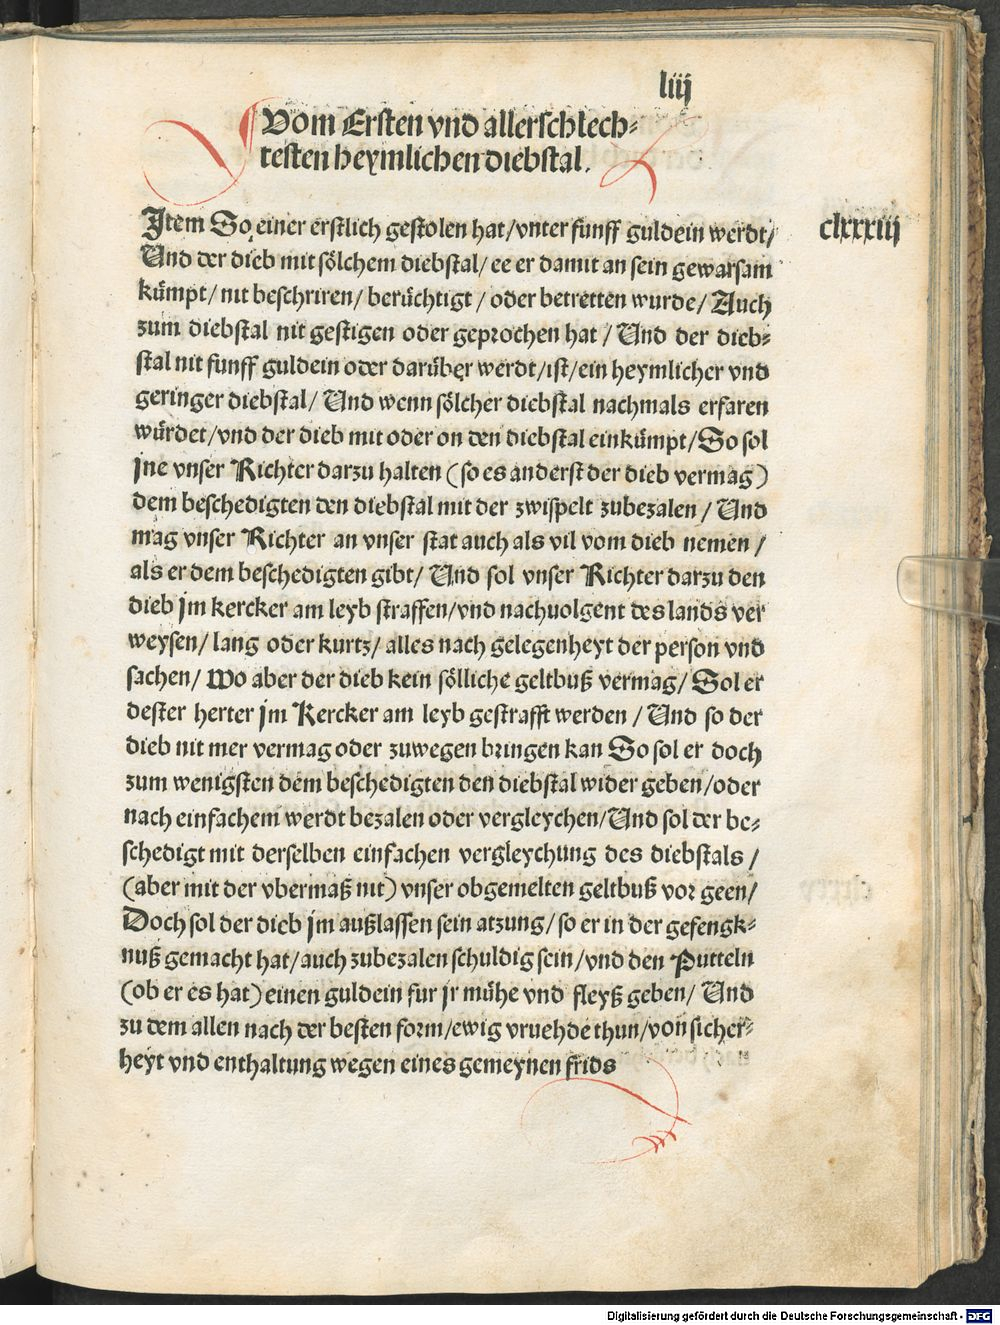 liij
Vom Ersten vnd allerschlech-
testen heymlichen diebstal.
Jtem So einer erstlich gestolen hat/vnter funff guldein werdt/
clxxxiij
Vnd der dieb mit sölchem diebstal/ ee er damit an sein gewarsam
kümpt/ nit beschriren/ berüchtigt / oder betretten wurde/ Auch
zum diebstal nit gestigen oder geprochen hat / Vnd der dieb-
stal nit funff guldein oder darüber werdt/ist/ein heymlicher vnd
geringer diebstal/ Vnd wenn sölcher diebstal nachmals erfaren
würdet/vnd der dieb mit oder on den diebstal einkümpt/So sol
jne vnser Richter darzu halten (so es anderst der dieb vermag)
dem beschedigten den diebstal mit der zwispelt zubezalen / Vnd
mag vnser Richter an vnser stat auch als vil vom dieb nemen /
als er dem beschedigten gibt/ Vnd sol vnser Richter darzu den
dieb jm kercker am leyb straffen/vnd nachuolgent des lands ver
weysen/ lang oder kurtz/ alles nach gelegenheyt der person vnd
sachen/ Wo aber der dieb kein sölliche geltbuß vermag/ Sol er
dester herter jm Kercker am leyb gestrafft werden / Vnd so der
dieb nit mer vermag oder zuwegen bringen kan So sol er doch
zum wenigsten dem beschedigten den diebstal wider geben/oder
nach einfachem werdt bezalen oder vergleychen/Vnd sol der be-
schedigt mit derselben einfachen vergleychung des diebstals /
(aber mit der vbermaß nit) vnser obgemelten geltbuß vor geen/
Doch sol der dieb jm außlassen sein atzung/ so er in der gefengk-
nuß gemacht hat/auch zubezalen schuldig sein/vnd den Putteln
(ob er es hat) einen guldein fur jr mühe vnd fleyß geben/ Vnd
zu dem allen nach der besten form/ewig vruehde thun/von sicher-
heyt vnd enthaltung wegen eines gemeynen frids
Digitalisierung gefördert durch die Deutsche Forschungsgemeinschaft - DFG